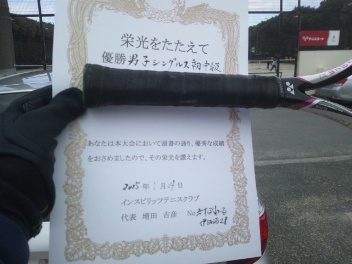 栄光をたたえて
優勝 男子シングルス 初中級
あなたは本大会において頭書の通り、優秀な成績
をおさめましたので、その栄光を讃えます。
2015年1月 日
インスピリッツテニスクラブ
代表 増田 吉彦 No.